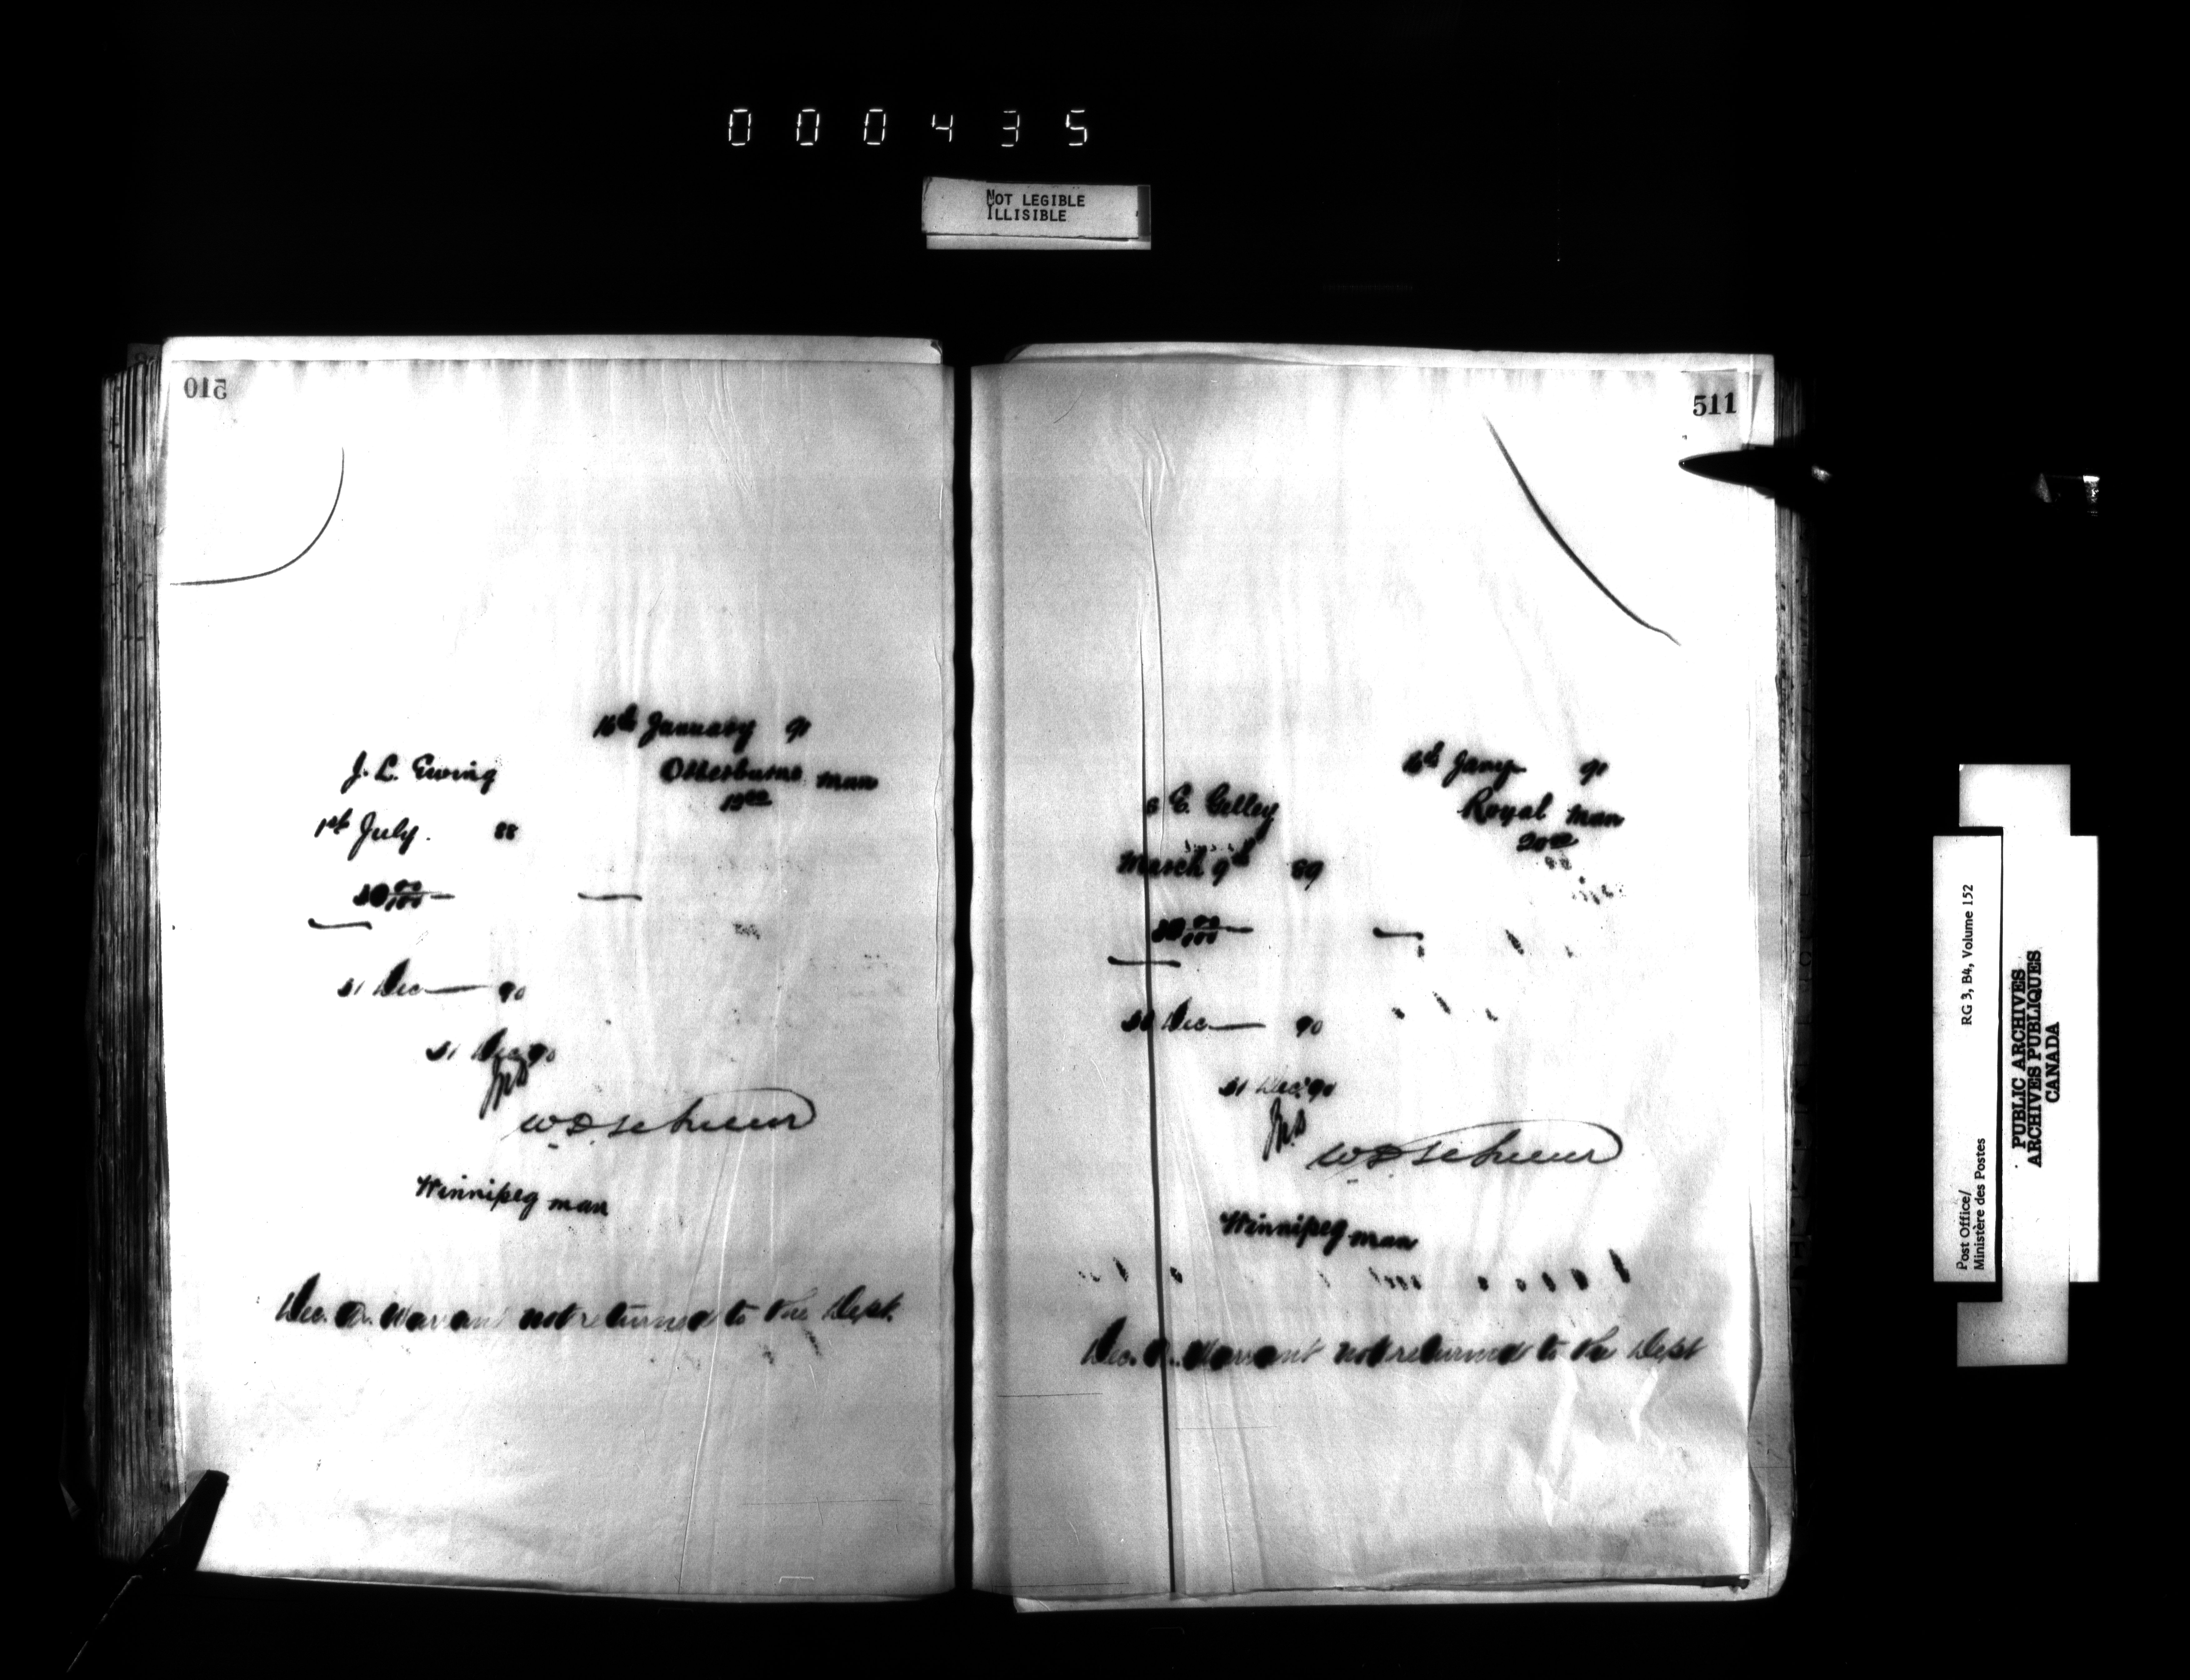 000435
NOT LEGIBLE
ILLISIBLE
510
16th January 91
J. L. Ewing
Otterburne man
12 00
1st July. 88
00/100
31 Dec 90
31 Dec 90
Winnipeg man
Dec. Qr. Warrant not returned to the Dept.
511
16th Jany 91
E. Gelley
Royal Man
20 00
March 9th 89
00/100
31 Dec 90
31 Dec. 90
Winnipeg man
Dec. Qr. Warrant not returned to the Dept
Post Office/ RG 3, B4, Volume 152
Ministère des Postes
PUBLIC ARCHIVES
ARCHIVES PUBLIQUES
CANADA